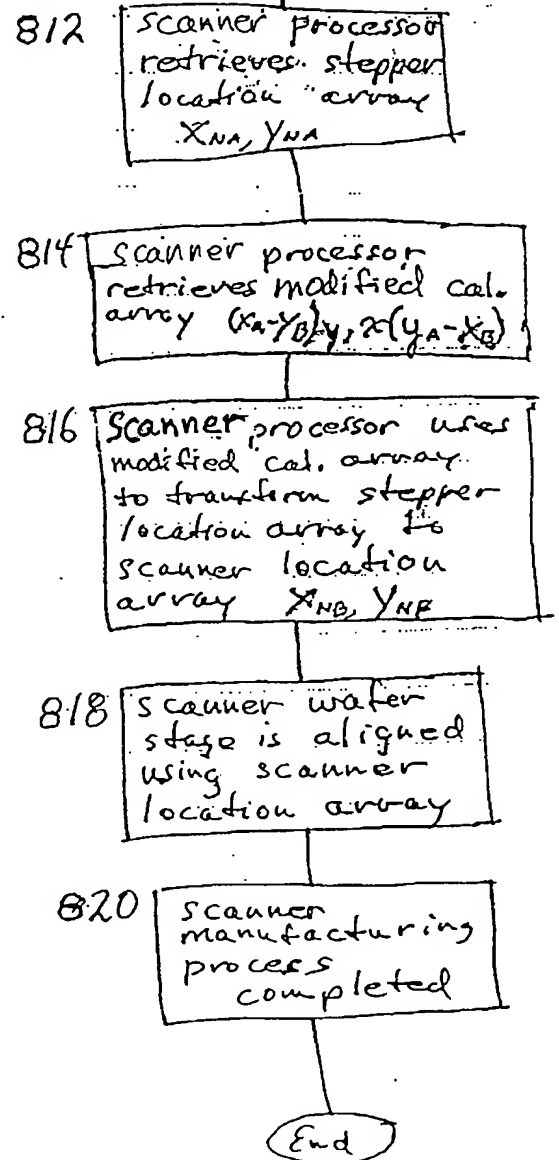 812
scanner processor
retrieves stepper
location array
X_NA, Y_NA
814
scanner processor
retrieves modified cal.
array (x_A-y_B)y, x(y_A-x_B)
816
Scanner processor uses
modified cal. array
to transform stepper
location array to
scanner location
array X_NB, Y_NB
818
scanner wafer
stage is aligned
using scanner
location array
820
scanner
manufacturing
process
completed
End